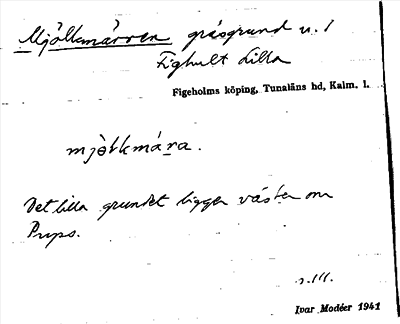 Mjölkmärren gräsgrund u. /
Fighult Lilla
Figeholms köping, Tunaläns hd, Kalm. l.
mjölkmára.
Det lilla grundet ligger väster om
Pups.
s. III.
Ivar Modéer 1941